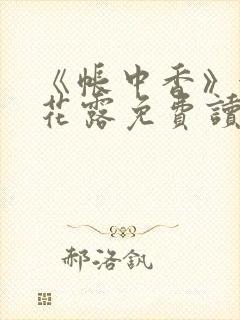 《帳中香》
花露免費讀
郝洛釩